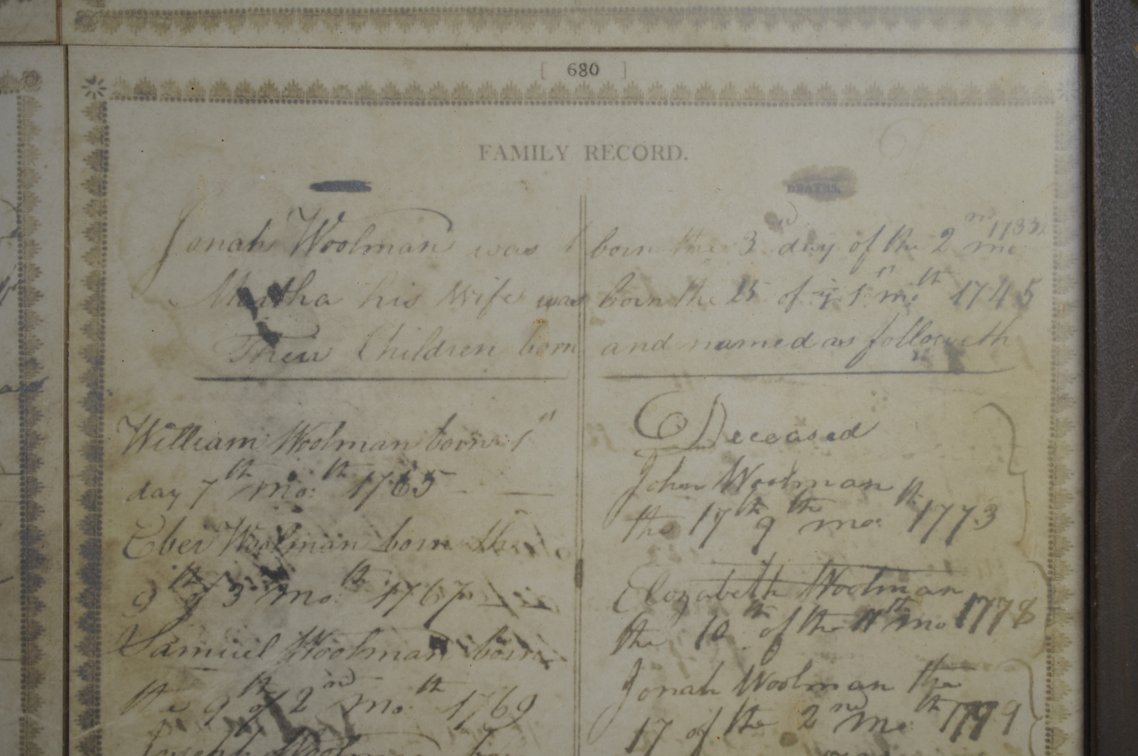 [ 680 ]
FAMILY RECORD.
DEATHS.
Jonah Woolman was born the 3d day of the 2nd mo
Martha his Wife was born the 25 of 1st mo. th 1745
Their Children born and named as followeth
William Woolman born 1st
day 7th mo. th 1765
Eber Woolman born the
9th 3 mo. th 1767
Samuel Woolman born
the 9th of 2nd mo. th 1769
Joseph Woolman
Deceased
John Woolman
the 17th 9th mo. th 1773
Elizabeth Woolman
the 10th of the 11th mo 1778
Jonah Woolman the
17 of the 2nd mo. th 1799